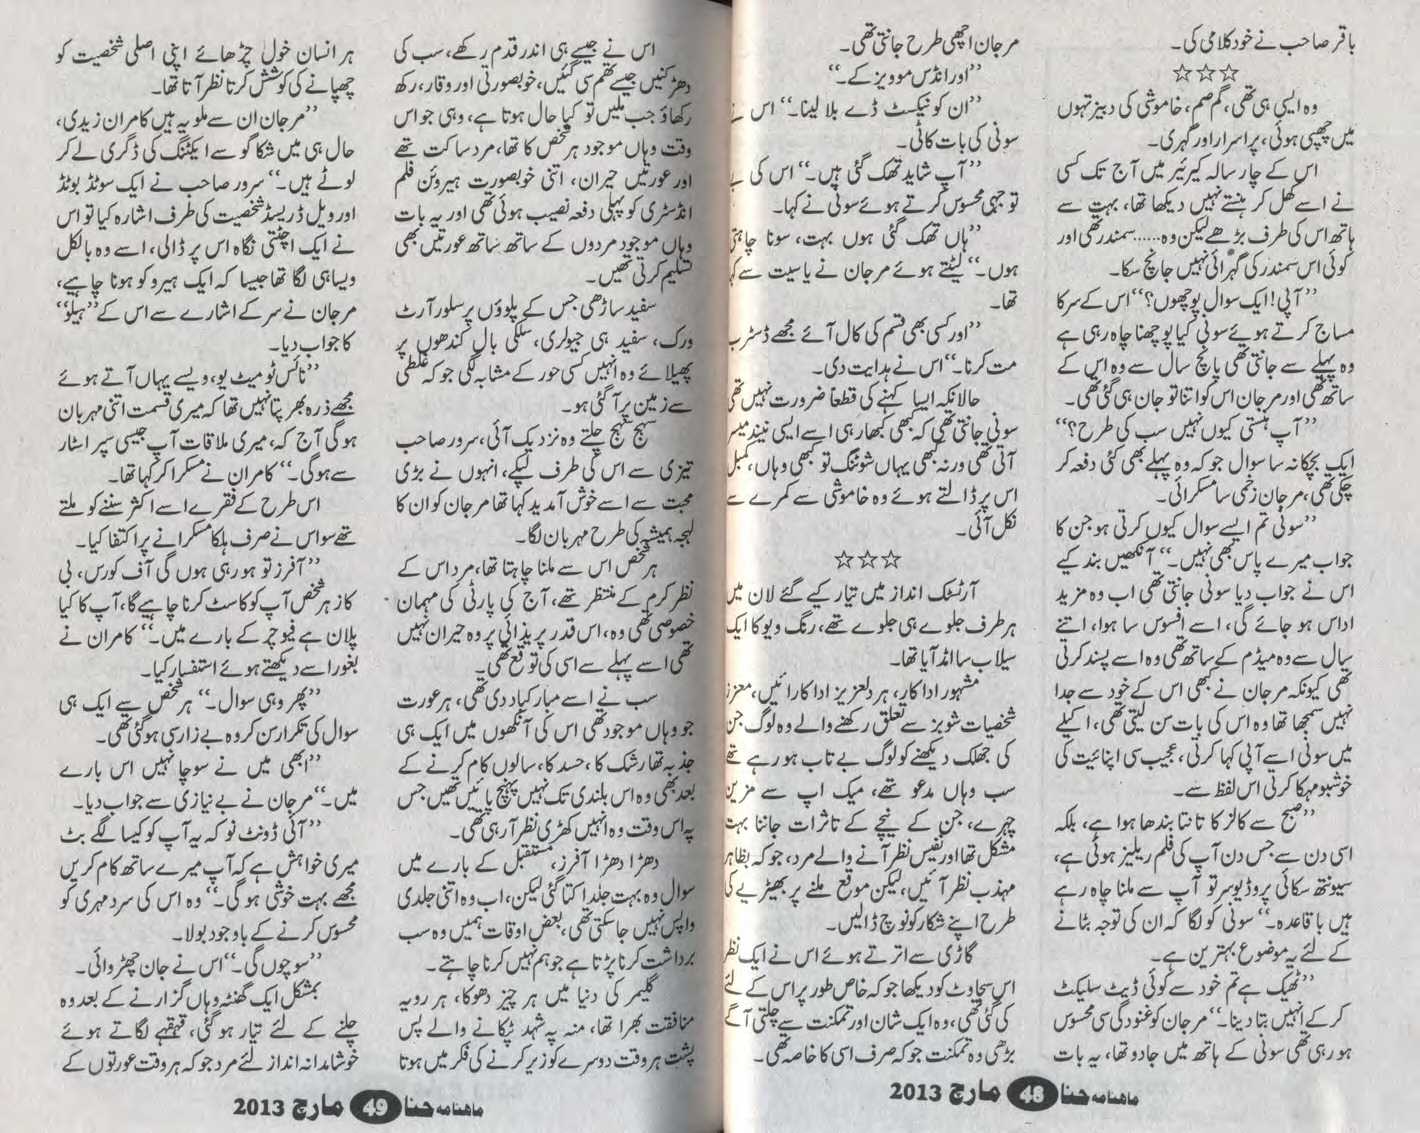 باقر صاحب نے خود کلامی کی۔
☆☆☆
وہ ایسی ہی تھی، گم صم، خاموشی کی دبیز تہوں
میں چھپی ہوئی، پراسرار اور گہری۔
اس کے چار سالہ کیرئیر میں آج تک کسی
نے اسے کھل کر ہنستے نہیں دیکھا تھا، بہت سے
ہاتھ اس کی طرف بڑھے لیکن وہ...... سمندر تھی اور
کوئی اس سمندر کی گہرائی نہیں جانچ سکا۔
’’آپی! ایک سوال پوچھوں؟‘‘ اس کے سر کا
مساج کرتے ہوئے سونی کیا پوچھنا چاہ رہی ہے
وہ پہلے سے جانتی تھی پانچ سال سے وہ اس کے
ساتھ تھی اور مرجان اس کو اتنا تو جان ہی گئی تھی۔
’’آپ ہنستی کیوں نہیں سب کی طرح؟‘‘
ایک بچکانہ سا سوال جو کہ وہ پہلے بھی کئی دفعہ کر
چکی تھی، مرجان زخمی سا مسکرائی۔
’’سونی تم ایسے سوال کیوں کرتی ہو جن کا
جواب میرے پاس بھی نہیں۔‘‘ آنکھیں بند کیے
اس نے جواب دیا سونی جانتی تھی اب وہ مزید
اداس ہو جائے گی، اسے افسوس سا ہوا، اتنے
سال سے وہ میڈم کے ساتھ تھی وہ اسے پسند کرتی
تھی کیونکہ مرجان نے کبھی اس کے خود سے جدا
نہیں سمجھا تھا وہ اس کی بات سن لیتی تھی، اکیلے
میں سونی اسے آپی کہا کرتی، عجیب سی اپنائیت کی
خوشبو مہکا کرتی اس لفظ سے۔
’’صبح سے کالز کا تانتا بندھا ہوا ہے، بلکہ
اسی دن سے جس دن آپ کی فلم ریلیز ہوئی ہے،
سیونتھ سکائی پروڈیوسر تو آپ سے ملنا چاہ رہے
ہیں باقاعدہ۔‘‘ سونی کو لگا کہ ان کی توجہ بٹانے
کے لئے یہ موضوع بہترین ہے۔
’’ٹھیک ہے تم خود سے کوئی ڈیٹ سلیکٹ
کر کے انہیں بتا دینا۔‘‘ مرجان کو غنودگی سی محسوس
ہو رہی تھی سونی کے ہاتھ میں جادو تھا، یہ بات
مرجان اچھی طرح جانتی تھی۔
’’اور انڈس موویز کے۔‘‘
’’ان کو نیکسٹ ڈے بلا لینا۔‘‘ اس نے
سونی کی بات کاٹی۔
’’آپ شاید تھک گئی ہیں۔‘‘ اس کی بے
توجہی محسوس کرتے ہوئے سونی نے کہا۔
’’ہاں تھک گئی ہوں بہت، سونا چاہتی
ہوں۔‘‘ لیٹتے ہوئے مرجان نے یاسیت سے کہا
تھا۔
’’اور کسی بھی قسم کی کال آئے مجھے ڈسٹرب
مت کرنا۔‘‘ اس نے ہدایت دی۔
حالانکہ ایسا کہنے کی قطعاً ضرورت نہیں تھی
سونی جانتی تھی کہ کبھی کبھار ہی اسے ایسی نیند میسر
آتی تھی ورنہ کبھی یہاں شوٹنگ تو کبھی وہاں، کمبل
اس پر ڈالتے ہوئے وہ خاموشی سے کمرے سے
نکل آئی۔
☆☆☆
آرٹسٹک انداز میں تیار کیے گئے لان میں
ہر طرف جلوے ہی جلوے تھے، رنگ و بو کا ایک
سیلاب سا امڈ آیا تھا۔
مشہور اداکار، ہر دلعزیز اداکارائیں، معزز
شخصیات شوبز سے تعلق رکھنے والے وہ لوگ جن
کی جھلک دیکھنے کو لوگ بے تاب ہو رہے تھے
سب وہاں مدعو تھے، میک اپ سے مزین
چہرے، جن کے نیچے کے تاثرات جاننا بہت
مشکل تھا اور نفیس نظر آنے والے مرد، جو کہ بظاہر
مہذب نظر آئیں، لیکن موقع ملنے پر بھیڑیے کی
طرح اپنے شکار کو نوچ ڈالیں۔
گاڑی سے اترتے ہوئے اس نے ایک نظر
اس سجاوٹ کو دیکھا جو کہ خاص طور پر اس کے لئے
کی گئی تھی، وہ ایک شان اور تمکنت سے چلتی آگے
بڑھی وہ تمکنت جو کہ صرف اسی کا خاصہ تھی۔
ماہنامہ حنا 48 مارچ 2013
اس نے جیسے ہی اندر قدم رکھے، سب کی
دھڑکنیں جیسے تھم سی گئیں، خوبصورتی اور وقار، رکھ
رکھاؤ جب ملیں تو کیا حال ہوتا ہے، وہی جو اس
وقت وہاں موجود ہر شخص کا تھا، مرد ساکت تھے
اور عورتیں حیران، اتنی خوبصورت ہیروئن فلم
انڈسٹری کو پہلی دفعہ نصیب ہوئی تھی اور یہ بات
وہاں موجود مردوں کے ساتھ ساتھ عورتیں بھی
تسلیم کرتی تھیں۔
سفید ساڑھی جس کے پلوؤں پر سلور آرٹ
ورک، سفید ہی جیولری، سلکی بال کندھوں پر
پھیلائے وہ انہیں کسی حور کے مشابہ لگی جو کہ غلطی
سے زمین پر آ گئی ہو۔
سہج سہج چلتے وہ نزدیک آئی، سرور صاحب
تیزی سے اس کی طرف لپکے، انہوں نے بڑی
محبت سے اسے خوش آمدید کہا تھا مرجان کو ان کا
لہجہ ہمیشہ کی طرح مہربان لگا۔
ہر شخص اس سے ملنا چاہتا تھا، مرد اس کے
نظر کرم کے منتظر تھے، آج کی پارٹی کی مہمان
خصوصی تھی وہ، اس قدر پزیرائی پر وہ حیران نہیں
تھی اسے پہلے سے اسی کی توقع تھی۔
سب نے اسے مبارکباد دی تھی، ہر عورت
جو وہاں موجود تھی اس کی آنکھوں میں ایک ہی
جذبہ تھا رشک کا، حسد کا، سالوں کام کرنے کے
بعد بھی وہ اس بلندی تک نہیں پہنچ پائیں تھیں جس
پہ اس وقت وہ انہیں کھڑی نظر آ رہی تھی۔
دھڑا دھڑا آفرز، مستقبل کے بارے میں
سوال وہ بہت جلد اکتا گئی لیکن، اب وہ اتنی جلدی
واپس نہیں جا سکتی تھی، بعض اوقات ہمیں وہ سب
برداشت کرنا پڑتا ہے جو ہم نہیں کرنا چاہتے۔
گلیمر کی دنیا میں ہر چیز دھوکا، ہر رویہ
منافقت بھرا تھا، منہ پہ شہد ٹپکانے والے پس
پشت ہر وقت دوسرے کو زیر کرنے کی فکر میں ہوتا
ہر انسان خول چڑھائے اپنی اصلی شخصیت کو
چھپانے کی کوشش کرتا نظر آتا تھا۔
’’مرجان ان سے ملو یہ ہیں کامران زیدی،
حال ہی میں شکاگو سے ایکٹنگ کی ڈگری لے کر
لوٹے ہیں۔‘‘ سرور صاحب نے ایک سوٹڈ بوٹڈ
اور ویل ڈریسڈ شخصیت کی طرف اشارہ کیا تو اس
نے ایک اچٹتی نگاہ اس پر ڈالی، اسے وہ بالکل
ویسا ہی لگا تھا جیسا کہ ایک ہیرو کو ہونا چاہیے،
مرجان نے سر کے اشارے سے اس کے ’’ہیلو‘‘
کا جواب دیا۔
’’نائس ٹو میٹ یو، ویسے یہاں آتے ہوئے
مجھے ذرہ بھر پتا نہیں تھا کہ میری قسمت اتنی مہربان
ہوگی آج کہ، میری ملاقات آپ جیسی سپر اسٹار
سے ہوگی۔‘‘ کامران نے مسکرا کر کہا تھا۔
اس طرح کے فقرے اسے اکثر سننے کو ملتے
تھے سو اس نے صرف ہلکا مسکرانے پر اکتفا کیا۔
’’آفرز تو ہو رہی ہوں گی آف کورس، بی
کاز ہر شخص آپ کو کاسٹ کرنا چاہیے گا، آپ کا کیا
پلان ہے فیوچر کے بارے میں۔‘‘ کامران نے
بغور اسے دیکھتے ہوئے استفسار کیا۔
’’پھر وہی سوال۔‘‘ ہر شخص سے ایک ہی
سوال کی تکرار سن کر وہ بے زار سی ہو گئی تھی۔
’’ابھی میں نے سوچا نہیں اس بارے
میں۔‘‘ مرجان نے بے نیازی سے جواب دیا۔
’’آئی ڈونٹ نو کہ یہ آپ کو کیسا لگے بٹ
میری خواہش ہے کہ آپ میرے ساتھ کام کریں
مجھے بہت خوشی ہوگی۔‘‘ وہ اس کی سرد مہری کو
محسوس کرنے کے باوجود بولا۔
’’سوچوں گی۔‘‘ اس نے جان چھڑوائی۔
بمشکل ایک گھنٹہ وہاں گزارنے کے بعد وہ
چلنے کے لئے تیار ہو گئی، قہقہے لگاتے ہوئے
خوشامدانہ انداز لئے مرد جو کہ ہر وقت عورتوں کے
ماہنامہ حنا 49 مارچ 2013